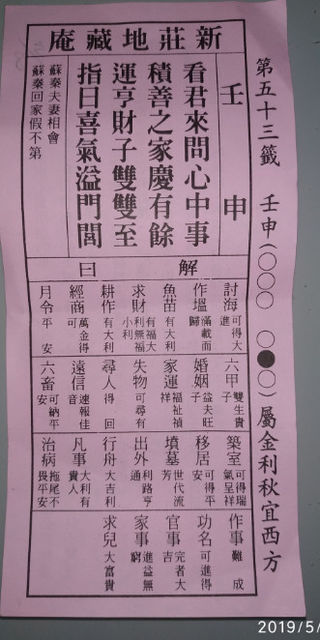 新莊地藏庵
第五十三籤　壬申(○○○　○●○)屬金利秋宜西方
壬申
看君來問心中事
積善之家慶有餘
運亨財子雙雙至
指日喜氣溢門閭
蘇秦夫妻相會
蘇秦回家假不第
解曰
討海 可得大進
作塭 滿載而歸
魚苗 有大利
求財 有福大利無福小利
耕作 有大利
經商 萬金得可
月令 平安
六甲 雙生貴子
婚姻 益夫旺子
家運 福祉禎祥
失物 可尋有
尋人 得回
遠信 速報佳音
六畜 可納平安
築室 可得瑞氣呈祥
移居 可得平安
墳墓 世代流芳
出外 利路亨通
行舟 大吉利
凡事 大利有貴人
治病 拖尾不畏平安
作事 難成
功名 可進得
官事 完者大吉
家事 進益無窮
求兒 大富貴
2019/5/